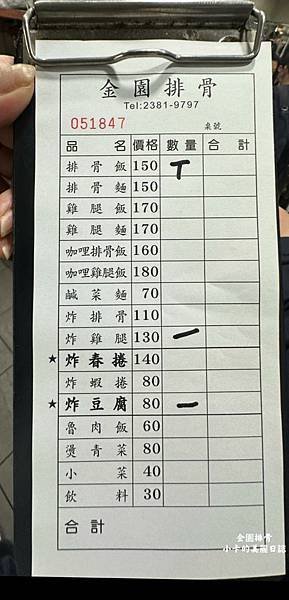 金園排骨
Tel:2381-9797
051847 桌號
品名 價格 數量 合計
排骨飯 150 T
排骨麵 150
雞腿飯 170
雞腿麵 170
咖哩排骨飯 160
咖哩雞腿飯 180
鹹菜麵 70
炸排骨 110
炸雞腿 130 一
★炸春捲 140
炸蝦捲 80
★炸豆腐 80 一
魯肉飯 60
燙青菜 80
小菜 40
飲料 30
合計
金園排骨
小卡的美麗日誌